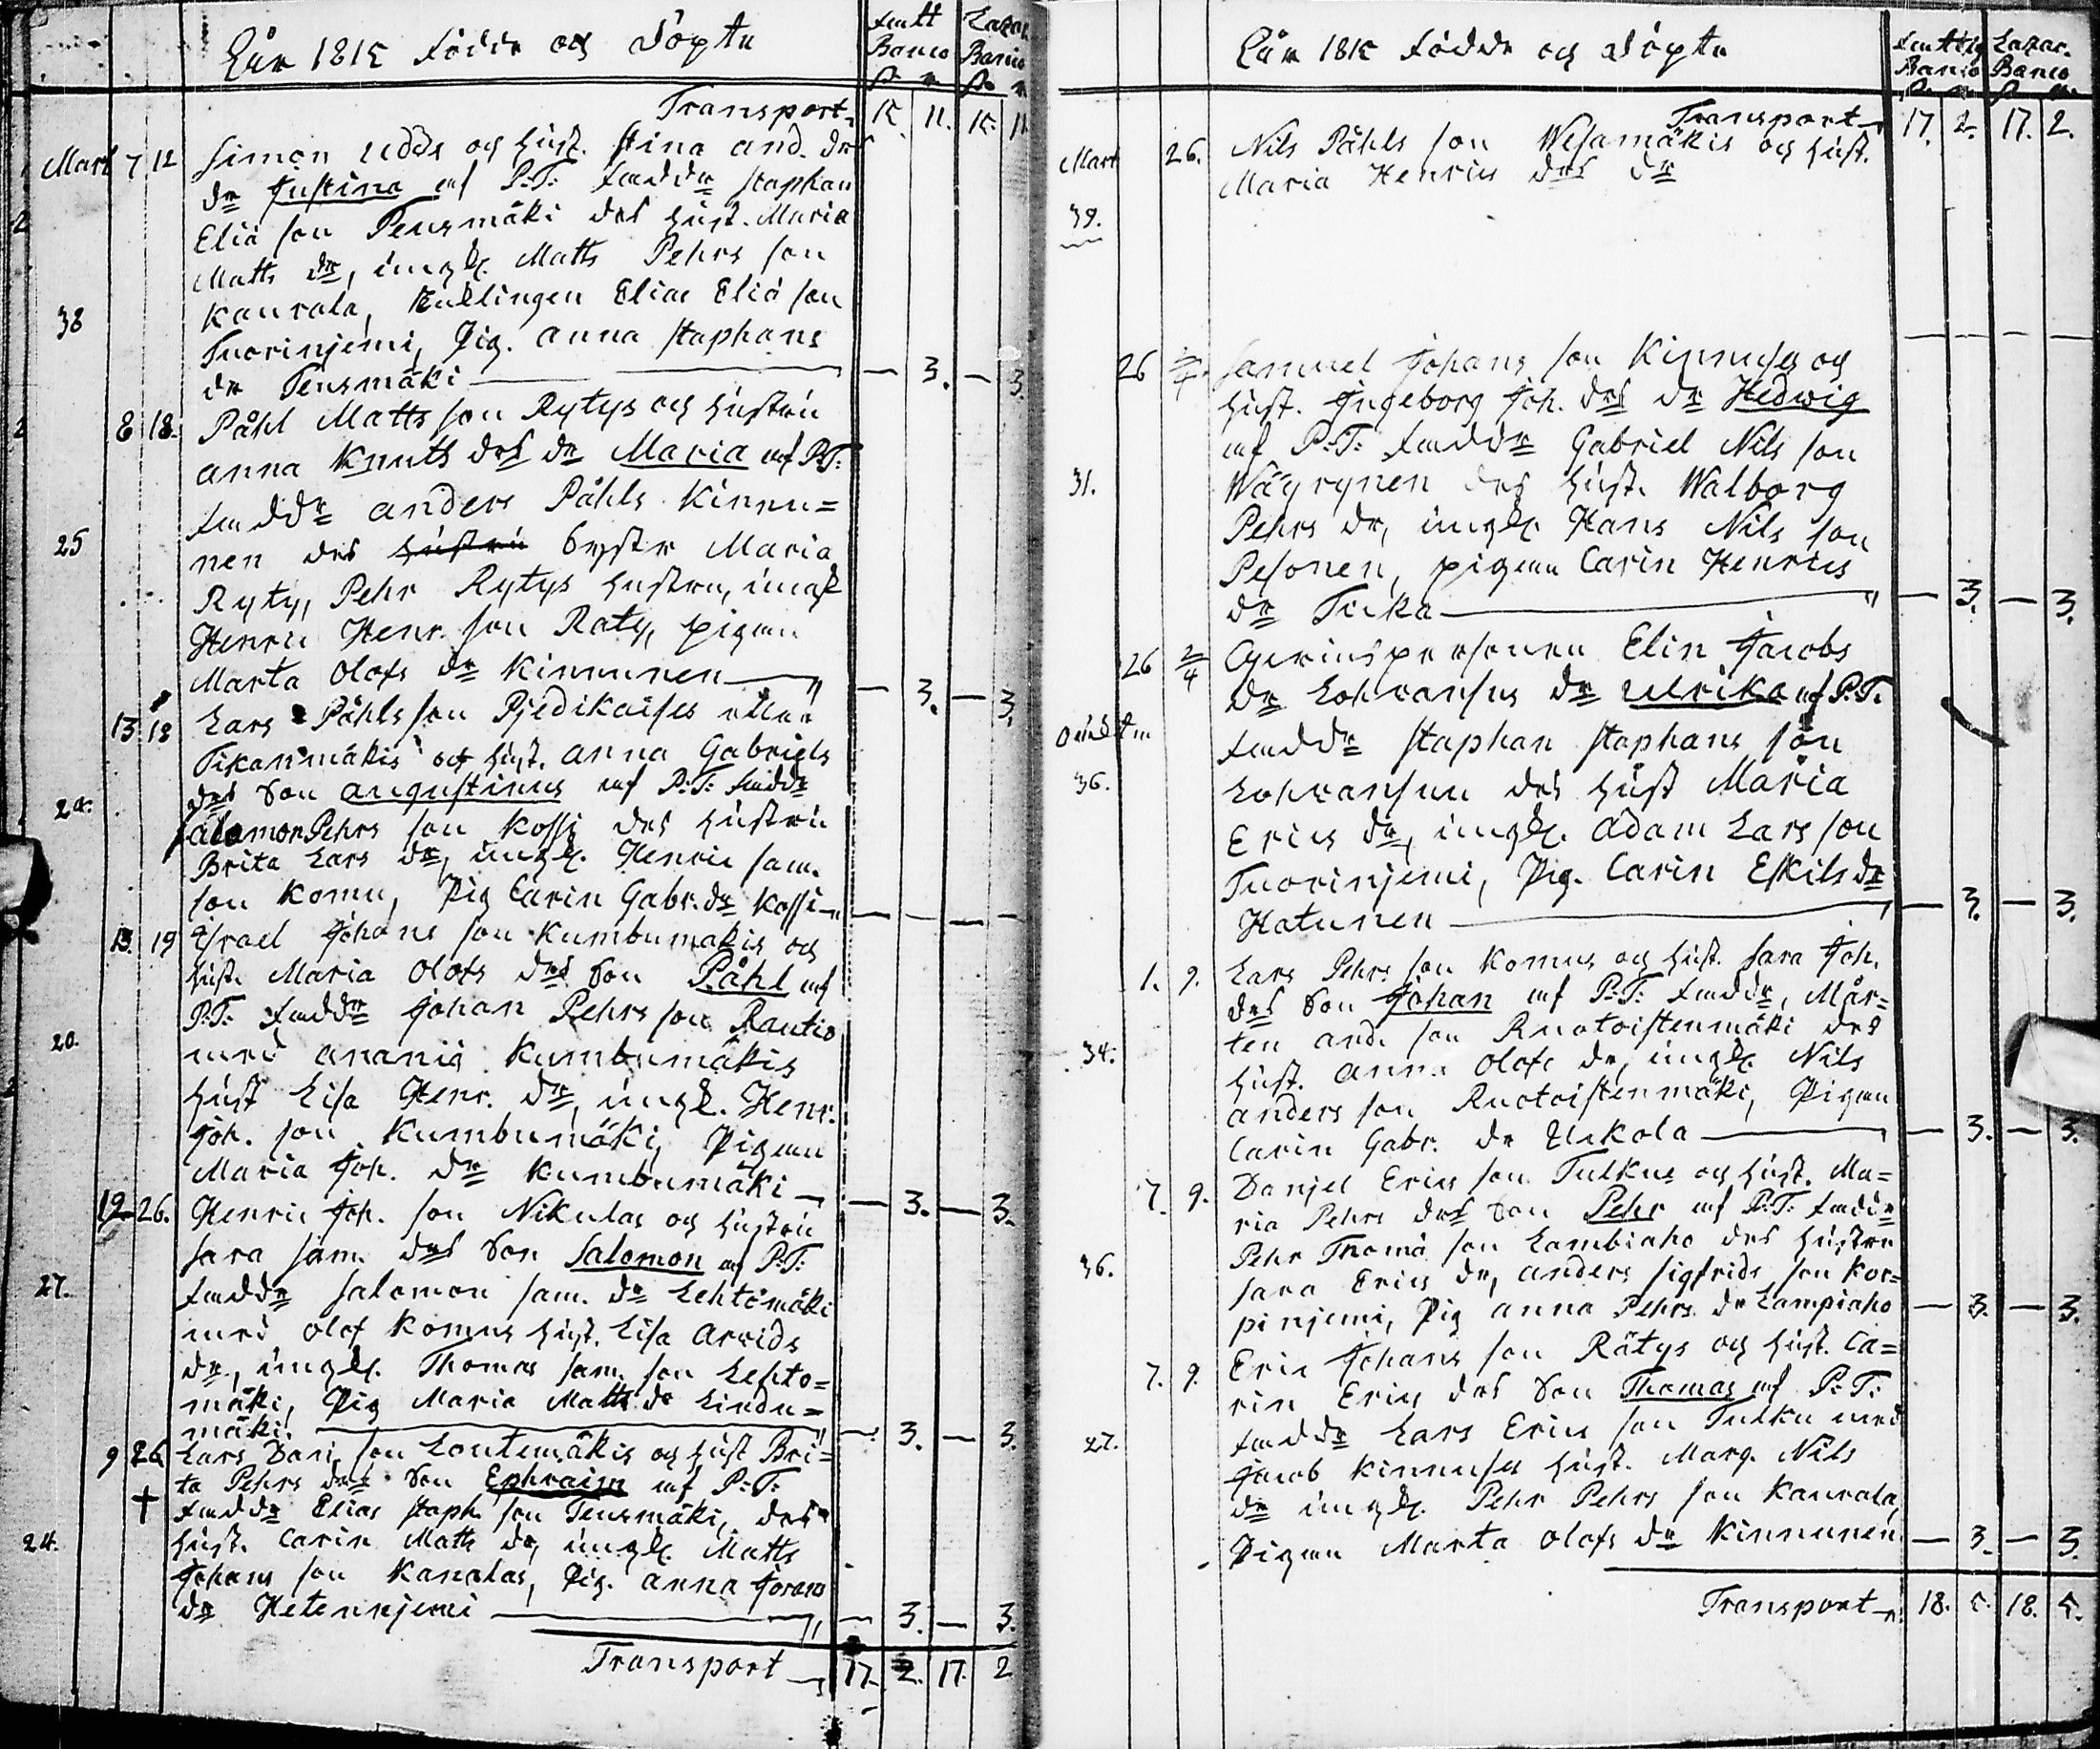 Åhr 1815 födde och döpte
Fatt Banco Lazar. Banco
Transport 15. 11. 15. 11
Mart 7 12 Simon Udds och Hust. Stina And. Drs
Dr Justina af P:T: Faddr Staphan
Eliæ son Teusmäki des Hust. Maria
Matts Dr, ungk. Matts Pehrs son
38 Kaurala, Enklingen Elias Eliæ son
Tuorinjemi, Pig. Anna Staphans
Dr Teusmäki — 3. — 3.
8 18. Påhl Matts son Rytys och Hustru
Anna Knuts drs Dr Maria af P:T:
Faddr Anders Påhls Kinnu=
25 nen des Hustru Syster Maria
Ryty, Pehr Rytys Hustru, ungk
Henric Henr. son Räty, pigan
Marta Olofs Dr Kinnunen — 3. — 3.
13 18 Lars Påhls son Pjedikäises eller
Tikanmäkis och Hust. Anna Gabriels
drs Son Augustinus af P:T: Faddr
24. Salomon Pehrs son Kossi des Hustru
Brita Lars Dr, ungk. Henric Sam.
son Komu, Pig Carin Gabr. Dr Kossi — — — —
13. 19 Israel Johans son Kumbumäkis och
Hust. Maria Olofs drs Son Påhl af
P:T: Faddr Johan Pehrs son Rautio
20. med Ananiæ Kumbumäkis
Hust Lisa Henr. Dr, ungk. Henr.
Joh. son Kumbumäki, Pigan
Maria Joh. Dr Kumbumäki — 3. — 3.
19 26. Henric Joh. son Nikulas och Hustru
Sara Sam. drs Son Salomon af P:T:
27. Faddr Salomon Sam. Dr Lehtomäki
med Olof Komus Hust. Lisa Arvids
Dr, ungk. Thomas Sam. son Lehto=
mäki, Pig Maria Matts Dr Lindu=
mäki. — 3. — 3.
9 26 Lars Dan. son Loutemäkis och Hust Bri=
ta Pehrs drs Son Ephraim af P:T:
† Faddr Elias Staph. son Teusmäki, des
24. Hust. Carin Matts Dr, ungk. Matts
Johans son Kanalas, Pig. Anna Jörans
Dr Hetennjemi — 3. — 3.
Transport 17. 2. 17. 2
Åhr 1815 födde och döpte
Fattig Banco Lazar. Banco
Transport 17. 2. 17. 2.
Mart 26. Nils Påhls son Wesamäkis och Hust.
Maria Henrics drs Dr
39.
26 2/4 Samuel Johans son Kinnuses och
Hust. Ingeborg Joh. drs Dr Hedwig
af P:T: Faddr Gabriel Nils son
31. Wäyrynen des Hust. Walborg
Pehrs Dr, ungk. Hans Nils son
Pesonen, pigan Carin Henrics
Dr Ticka — 3. — 3.
26 2/4 Qvinspersonen Elin Jacobs
Dr Lohvansus Dr Ulrika af P:T.
Faddr Staphan Staphans son
36. Lohvansuu des Hust Maria
Erics Dr, ungk. Adam Lars son
Tuorinjemi, Pig. Carin Eskils Dr
Hatunen — 3. — 3.
1. 9. Lars Pehrs son Komus och Hust. Sara Joh.
drs Son Johan af P:T: Faddr, Mår=
ten And. son Ruotoistenmäki des
34. Hust. Anna Olofs Dr, ungk. Nils
Anders son Ruotoistenmäki, Pigan
Carin Gabr. Dr Uckola — 3. — 3.
7. 9. Danjel Erics son Tulkus och Hust. Ma=
ria Pehrs drs Son Pehr af P:T: Faddr
36. Pehr Thomæ son Lambiaho des Hustru
Sara Erics Dr, Anders Sigfrids son Kor=
pinjemi, Pig Anna Pehrs Dr Lampiaho — 3. — 3.
7. 9. Eric Johans son Rätys och Hust. Ca=
rin Erics drs Son Thomas af P:T:
27. Faddr Lars Erics son Tulku med
Jacob Kinnuses Hust. Marg. Nils
Dr ungk. Pehr Pehrs son Kaurala,
Pigan Marta Olofs Dr Kinnunen — 3. — 3.
Transport 18. 5. 18. 5.